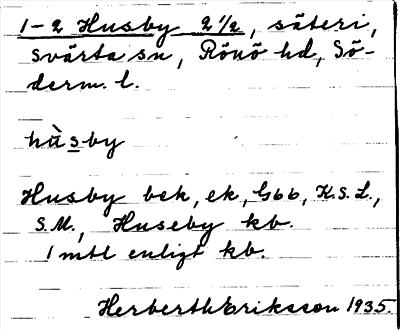 1-2 Husby 2 1/2, säteri,
Svärta sn, Rönö hd, Sö-
derm. l.
hù̀sby
Husby bek, ek, Gbb, K.S.L.,
S.M., Huseby kb.
1 mtl enligt kb.
Herberth Eriksson 1935.